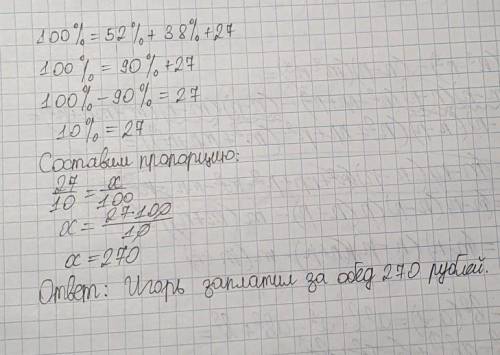 100% = 52% + 38% + 27
100% = 90% + 27
100% - 90% = 27
10% = 27
Составим пропорцию:
27/10 = x/100
x = 27·100/10
x = 270
Ответ: Игорь заплатил за обед 270 рублей.